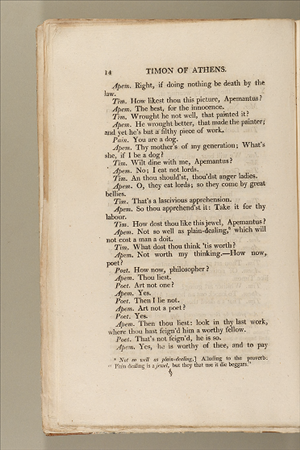 14 TIMON OF ATHENS.
Apem. Right, if doing nothing be death by the
law.
Tim. How likest thou this picture, Apemantus?
Apem. The best, for the innocence.
Tim. Wrought he not well, that painted it?
Apem. He wrought better, that made the painter;
and yet he's but a filthy piece of work.
Pain. You are a dog.
Apem. Thy mother's of my generation; What's
she, if I be a dog?
Tim. Wilt dine with me, Apemantus?
Apem. No; I eat not lords.
Tim. An thou should'st, thou'dst anger ladies.
Apem. O, they eat lords; so they come by great
bellies.
Tim. That's a lascivious apprehension.
Apem. So thou apprehend'st it: Take it for thy
labour.
Tim. How dost thou like this jewel, Apemantus?
Apem. Not so well as plain-dealing,* which will
not cost a man a doit.
Tim. What dost thou think 'tis worth?
Apem. Not worth my thinking.—How now,
poet?
Poet. How now, philosopher?
Apem. Thou liest.
Poet. Art not one?
Apem. Yes.
Poet. Then I lie not.
Apem. Art not a poet?
Poet. Yes.
Apem. Then thou liest: look in thy last work,
where thou hast feign'd him a worthy fellow.
Poet. That's not feign'd, he is so.
Apem. Yes, he is worthy of thee, and to pay
* Not so well as plain-dealing,] Alluding to the proverb:
" Plain dealing is a jewel, but they that use it die beggars."